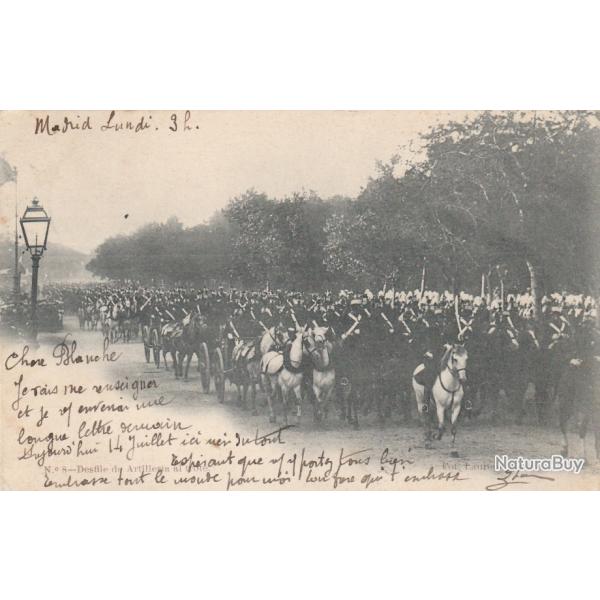 Madrid Lundi. 3h.
Chère Blanche
Je vais me renseigner
et je t'enverrai une
longue lettre demain
Aujourd'hui 14 Juillet ici rien du tout
Espérant que vous portez tous bien
N.º 8—Desfile de Artilleria
embrasse tout le monde pour moi ton frère qui t'embrasse
NaturaBuy